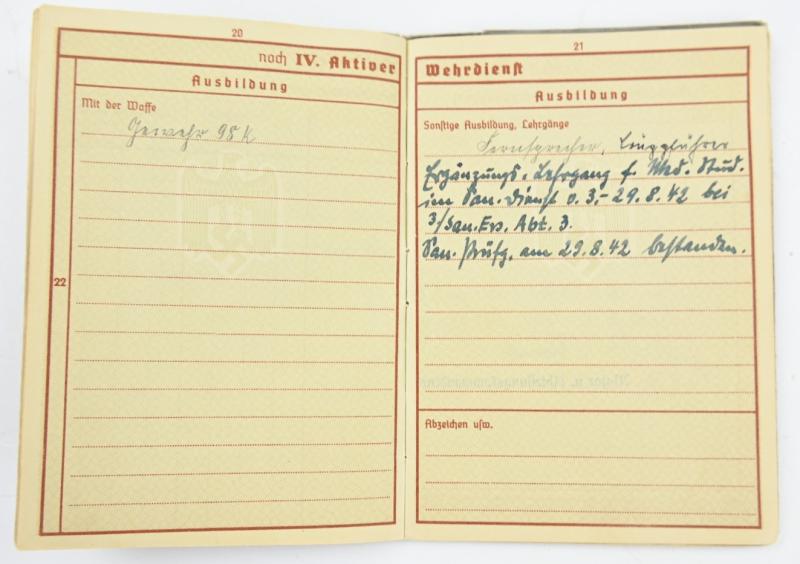 20
noch IV. Aktiver
Ausbildung
Mit der Waffe
Gewehr 98 k
22
21
Wehrdienst
Ausbildung
Sonstige Ausbildung, Lehrgänge
Fernsprecher,
Ergänzungs-Lehrgang f. Med. Stud.
im San.-Dienst v. 3.-29.8.42 bei
3/San. Ers. Abt. 3.
San. Prüfg. am 29.8.42 bestanden.
Abzeichen usw.